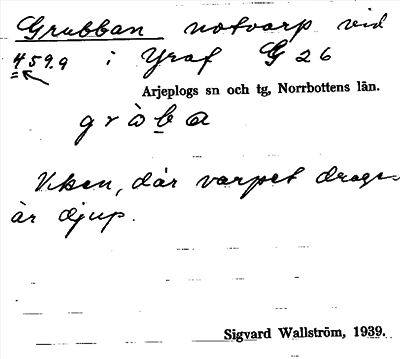 Grubban notvarp vid
459.9 i Yraf G 26
Arjeplogs sn och tg, Norrbottens län.
gràba
Viken, där varpet drages
är djup.
Sigvard Wallström, 1939.